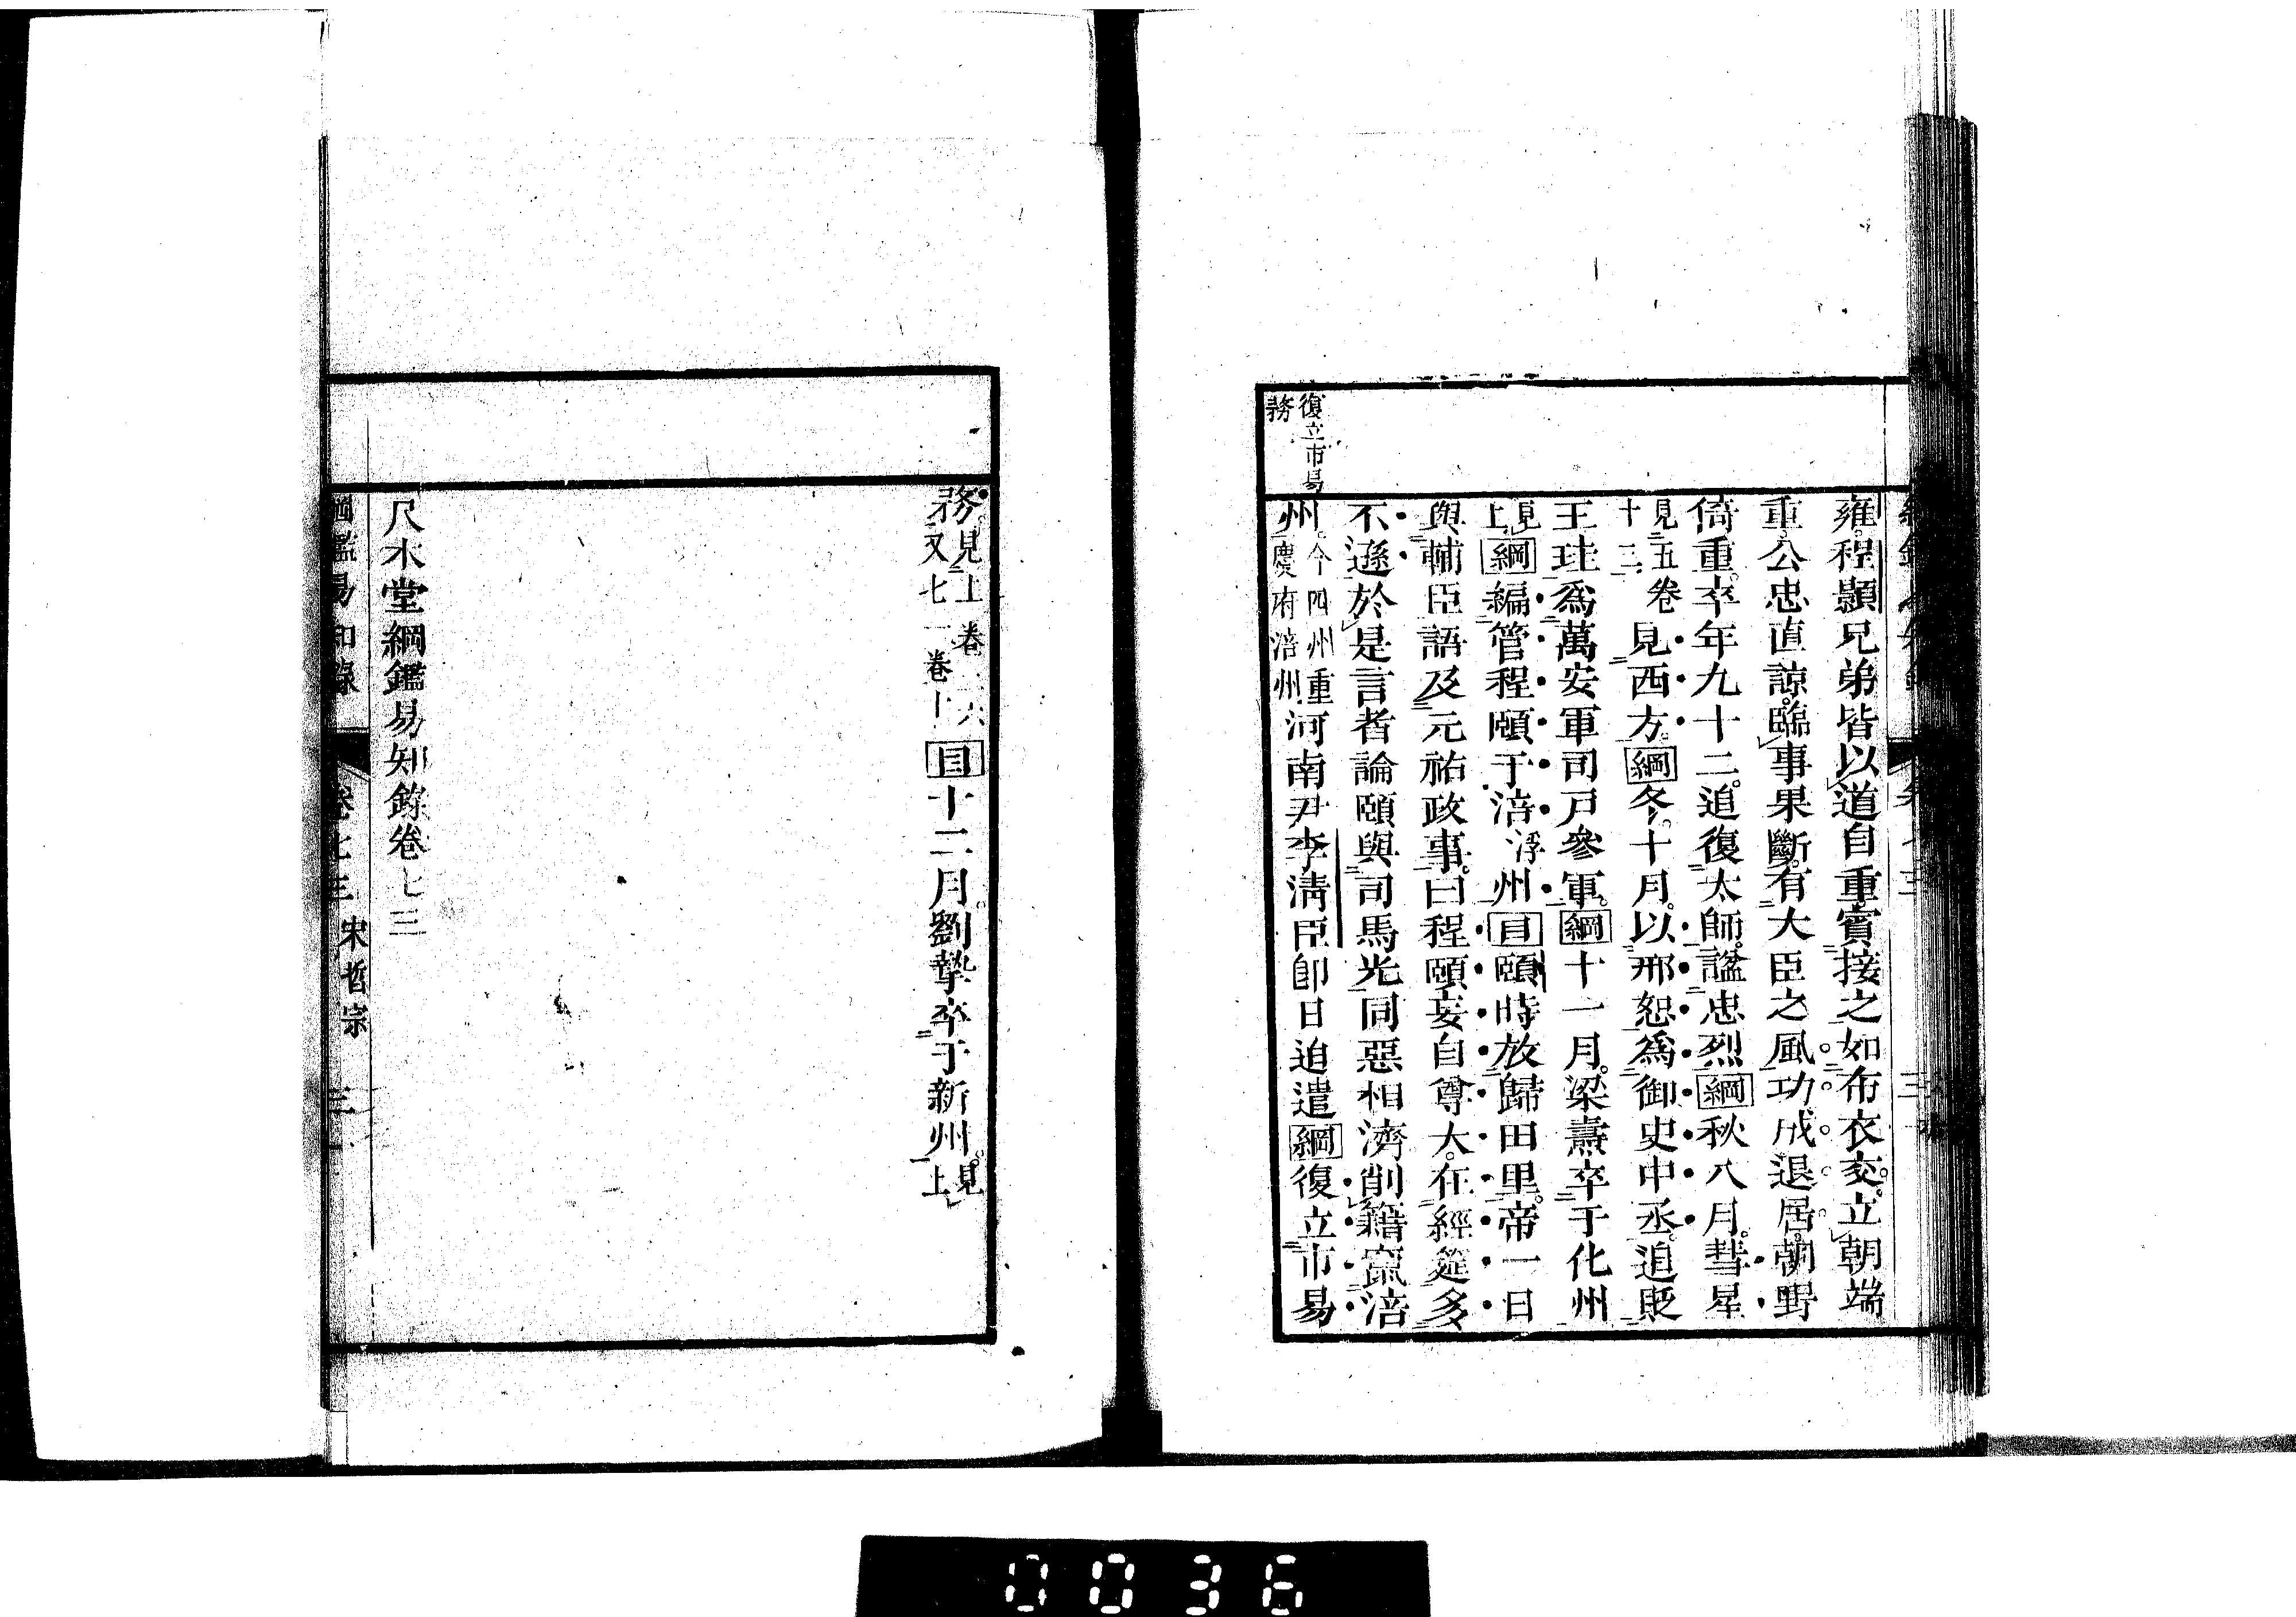 雍。程顥兄弟皆以道自重賓接之如布衣交。立朝端
重。公忠直諒。臨事果斷。有大臣之風。功成退居。朝野
倚重。卒年九十二。追復太師。謚忠烈綱秋八月。彗星
見五卷
十三
見西方。綱冬。十月。以邢恕為御史中丞。追貶
王珪為萬安軍司戶參軍。綱十一月。梁燾卒于化州
見
上
綱編管程頤于涪浮州目頤時放歸田里。帝一日
與輔臣語及元祐政事。曰程頤妄自尊大。在經筵多
不遜於是言者論頤與司馬光同惡相濟削籍竄涪
復立市易
務
州。
今四州重
慶府涪州
河南尹李淸臣卽日迫遣綱復立市易
務。
見上卷
又七一卷十六
目十二月。劉摯卒于新州。
見
上
尺木堂綱鑑易知錄卷七三
綱鑑易知錄 卷七三 宋哲宗 三
0036